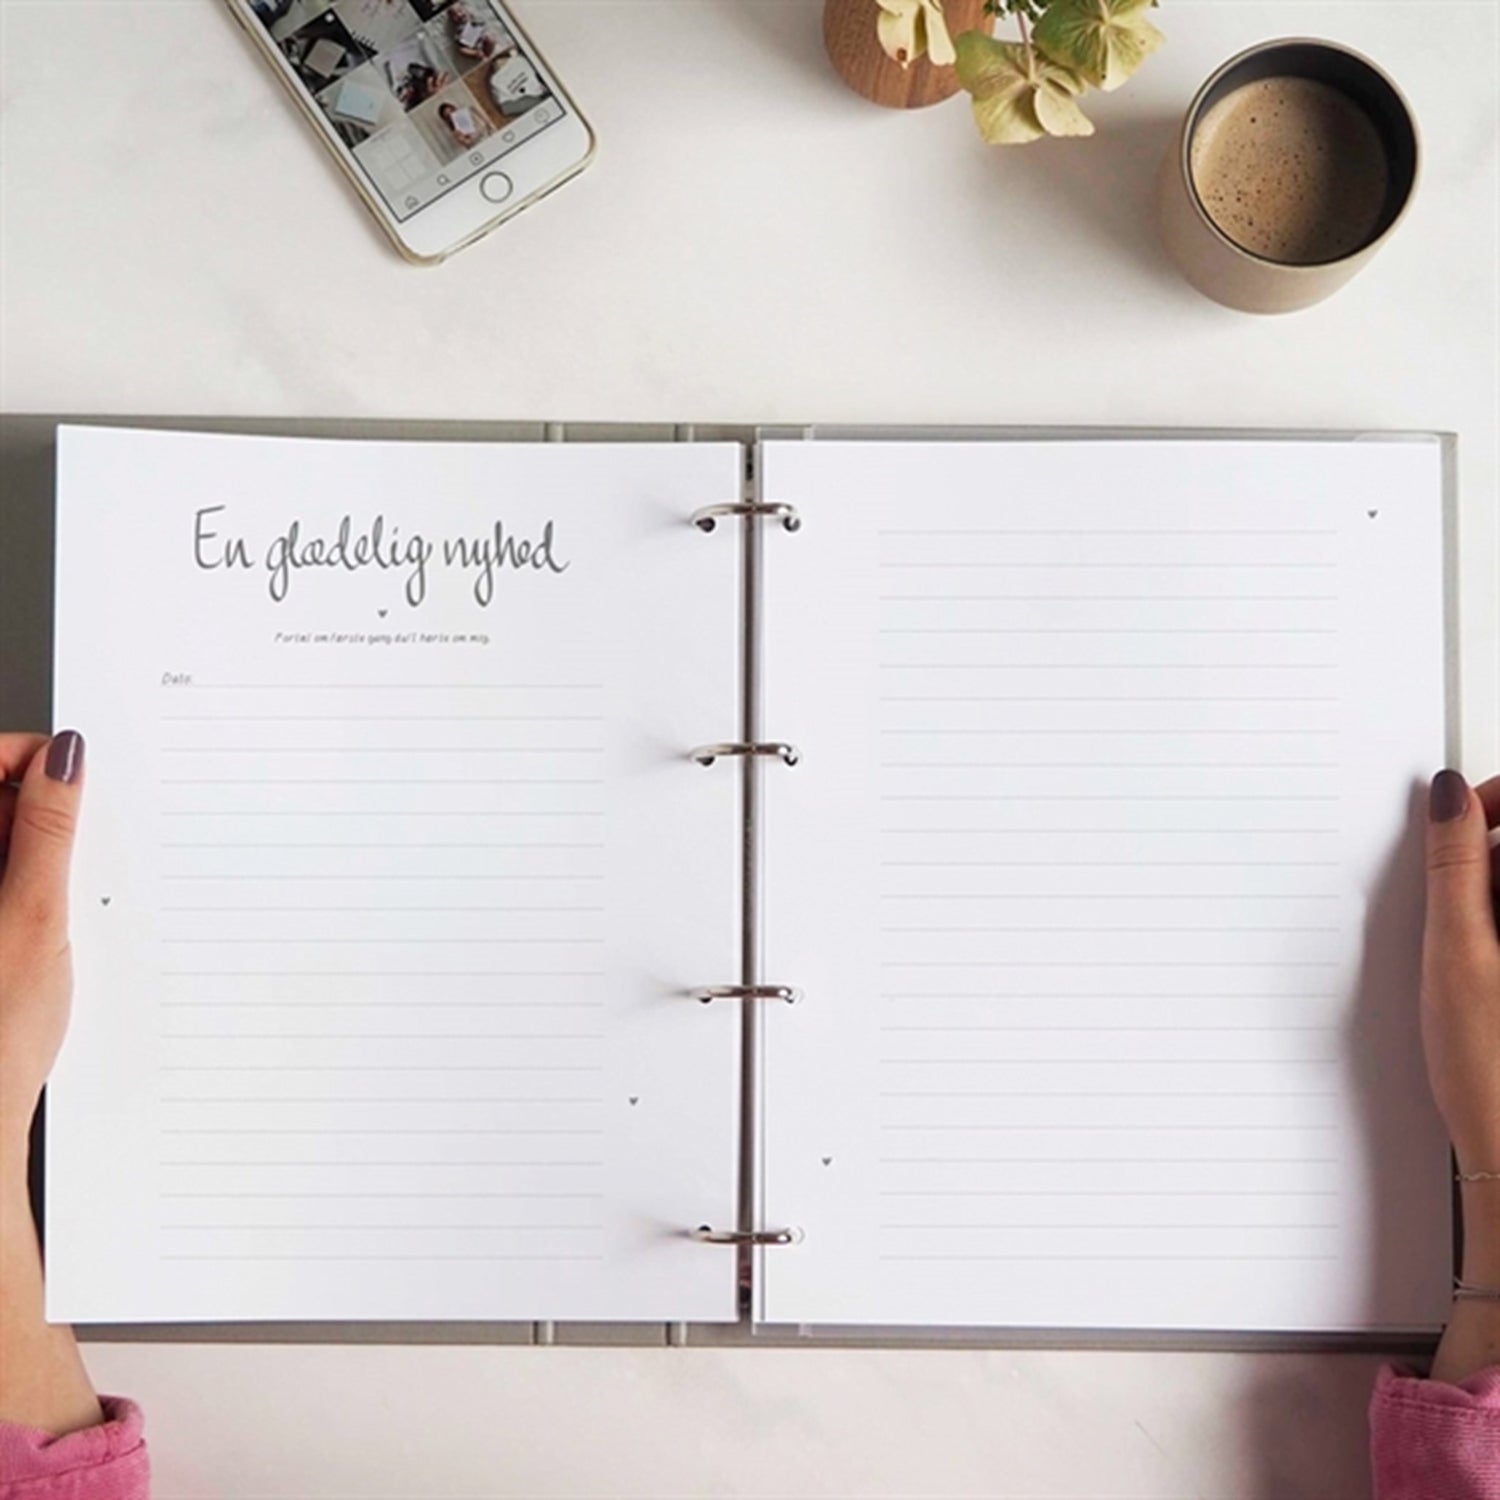 En glædelig nyhed
Fortæl om første gang du/I hørte om mig.
Dato: